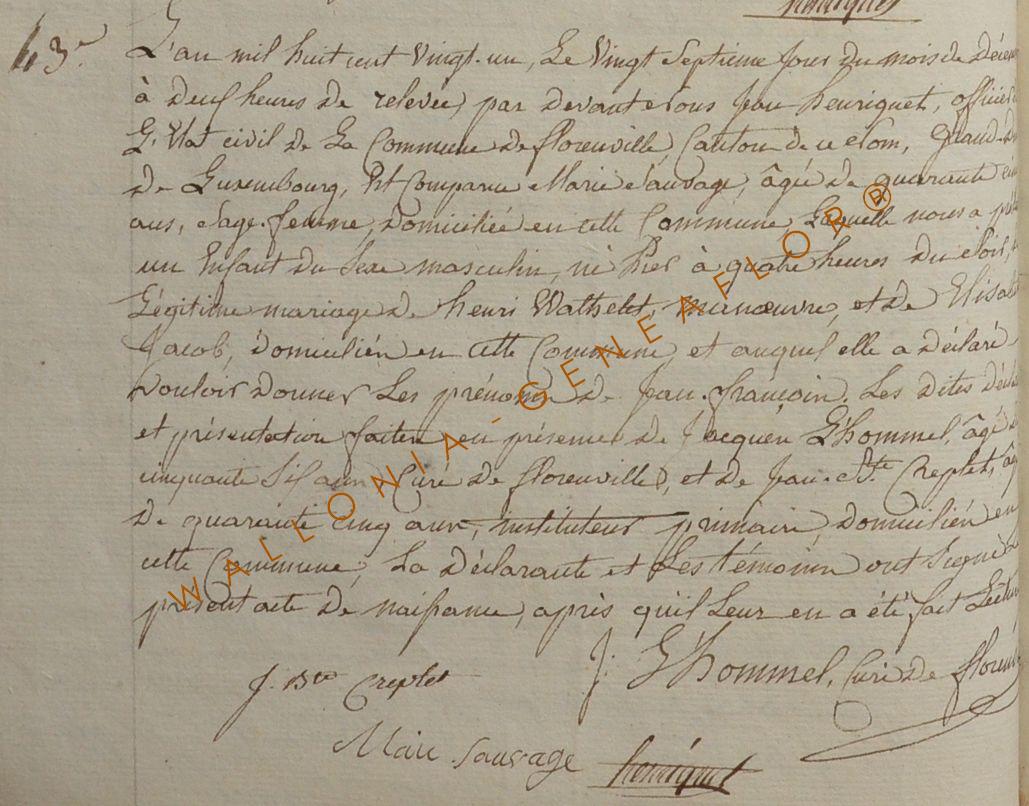 henriquet
43e
L'an mil huit cent Vingt-un, Le Vingt Septieme Jour du mois de Décem
à deux heures de relevée, par devant Nous Jean henriquet, officier
L'Etat civil de La Commune de florenville, Canton de ce Nom, Grand-D
de Luxembourg, Est Comparue Marie Sauvage, âgée de quarante
ans, Sage-femme, domiciliée en cette Commune, Laquelle nous a
un Enfant du Sexe masculin, né hier à quatre heures du Soir,
Légitime mariage de henri Wathelet, manœuvre, et de Elisab
Jacob, domiciliés en cette Commune, et auquel elle a déclaré
Vouloir donner Les prénoms de Jean-françois. Les dites décla
et présentation faites en présence de Jacques Lhommel, âgé
cinquante Six ans, Curé de florenville, et de Jean-Bte Creplet, âg
de quarante cinq ans, instituteur primair, domiciliés en
cette Commune, La déclarante et Les témoins ont Signé
présent acte de naissance, après qu'il Leur en a été fait Lectur
J. Bte Creplet
J. Lhommel, Curé de floren
Marie Sauvage
henriquet
WALLONIA-GENEAFLOR®